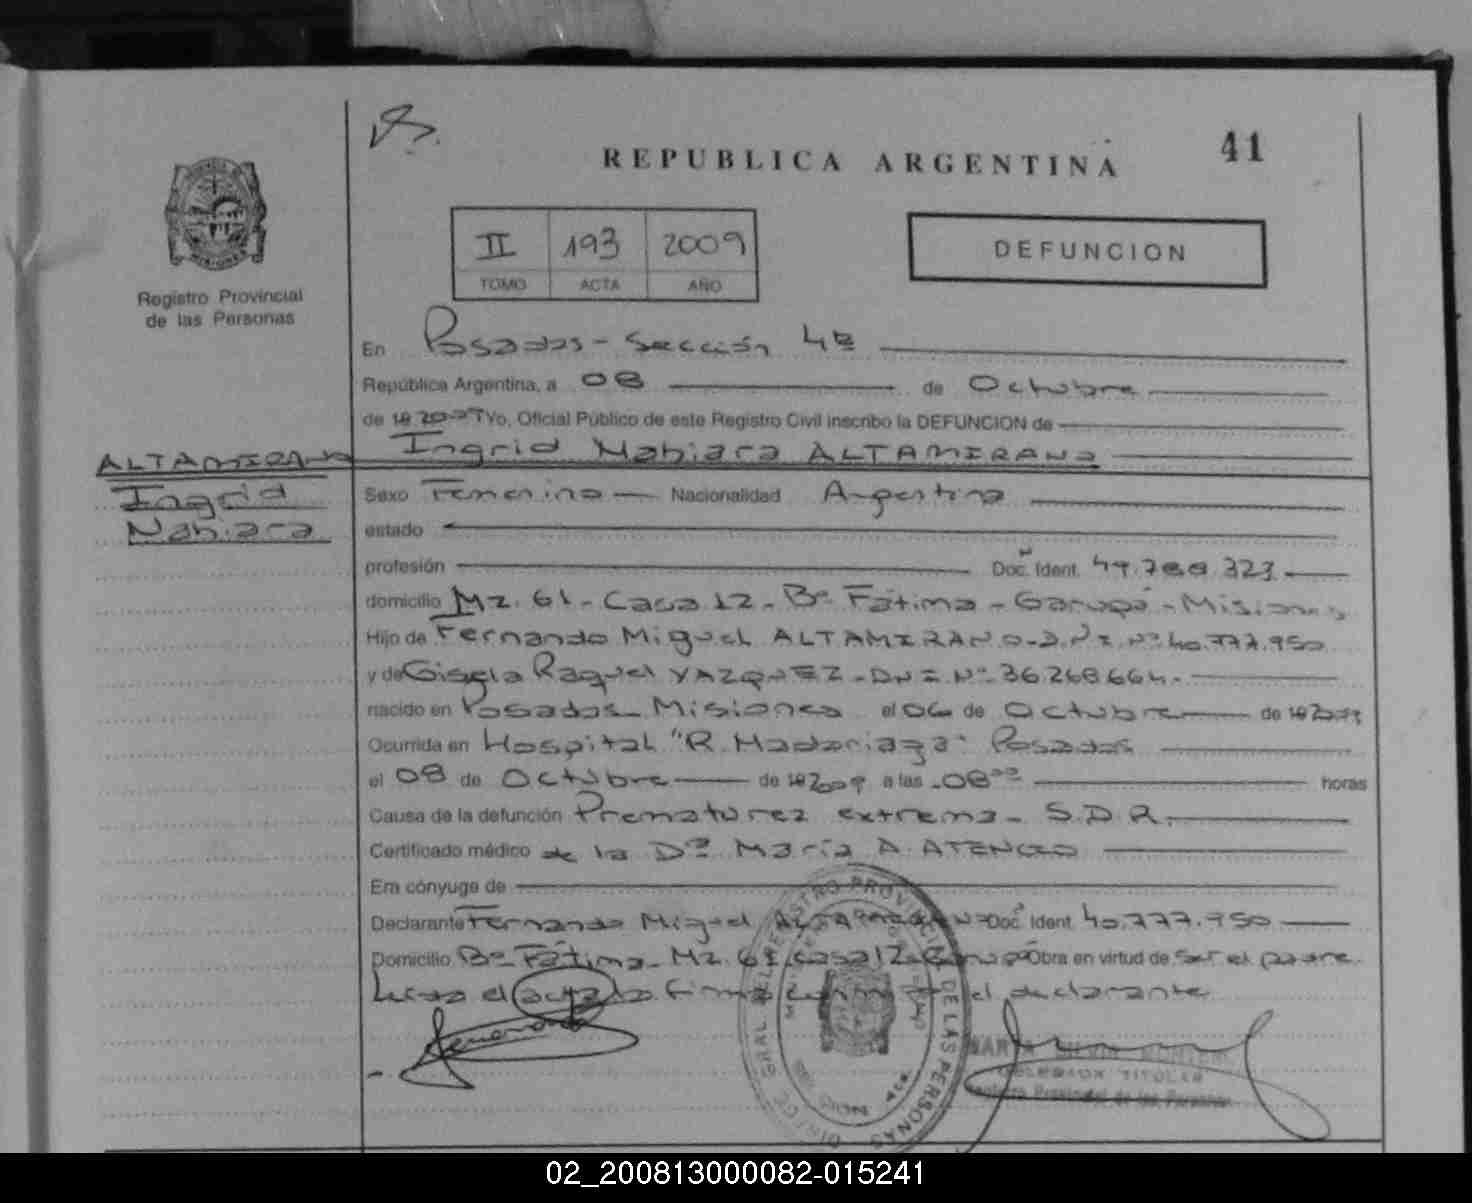 41
REPUBLICA ARGENTINA
II 193 2009
TOMO ACTA AÑO
DEFUNCION
Registro Provincial
de las Personas
En Posadas - Sección 4ª
República Argentina, a 08 de Octubre
de 19 2009 Yo, Oficial Público de este Registro Civil inscribo la DEFUNCION de
Ingrid Nahiara ALTAMIRANO
ALTAMIRANO
Ingrid
Nahiara
Sexo Femenino Nacionalidad Argentina
estado
profesión Doc. Ident. 49.788.323
domicilio Mz. 61 - Casa 12 - Bº Fátima - Garupá - Misiones
Hijo de Fernando Miguel ALTAMIRANO - D.N.I. Nº 40.777.950
y de Gisela Raquel VAZQUEZ - DNI Nº 36.268.664.-
nacido en Posadas - Misiones el 06 de Octubre de 19 2009
Ocurrida en Hospital "R. Madariaga" Posadas
el 08 de Octubre de 19 2009 a las 08 horas
Causa de la defunción Prematurez extrema - S.D.R.
Certificado médico de la Dra María A. ATENCIO
Era cónyuge de
Declarante Fernando Miguel ALTAMIRANO Doc. Ident. 40.777.950
Domicilio Bº Fátima - Mz. 61 Casa 12 - Garupá Obra en virtud de ser el padre
el acta la firma el declarante
Fernando
REGISTRO PROVINCIAL DE LAS PERSONAS
DELEGADA TITULAR
Registro Provincial de las Personas
02_200813000082-015241